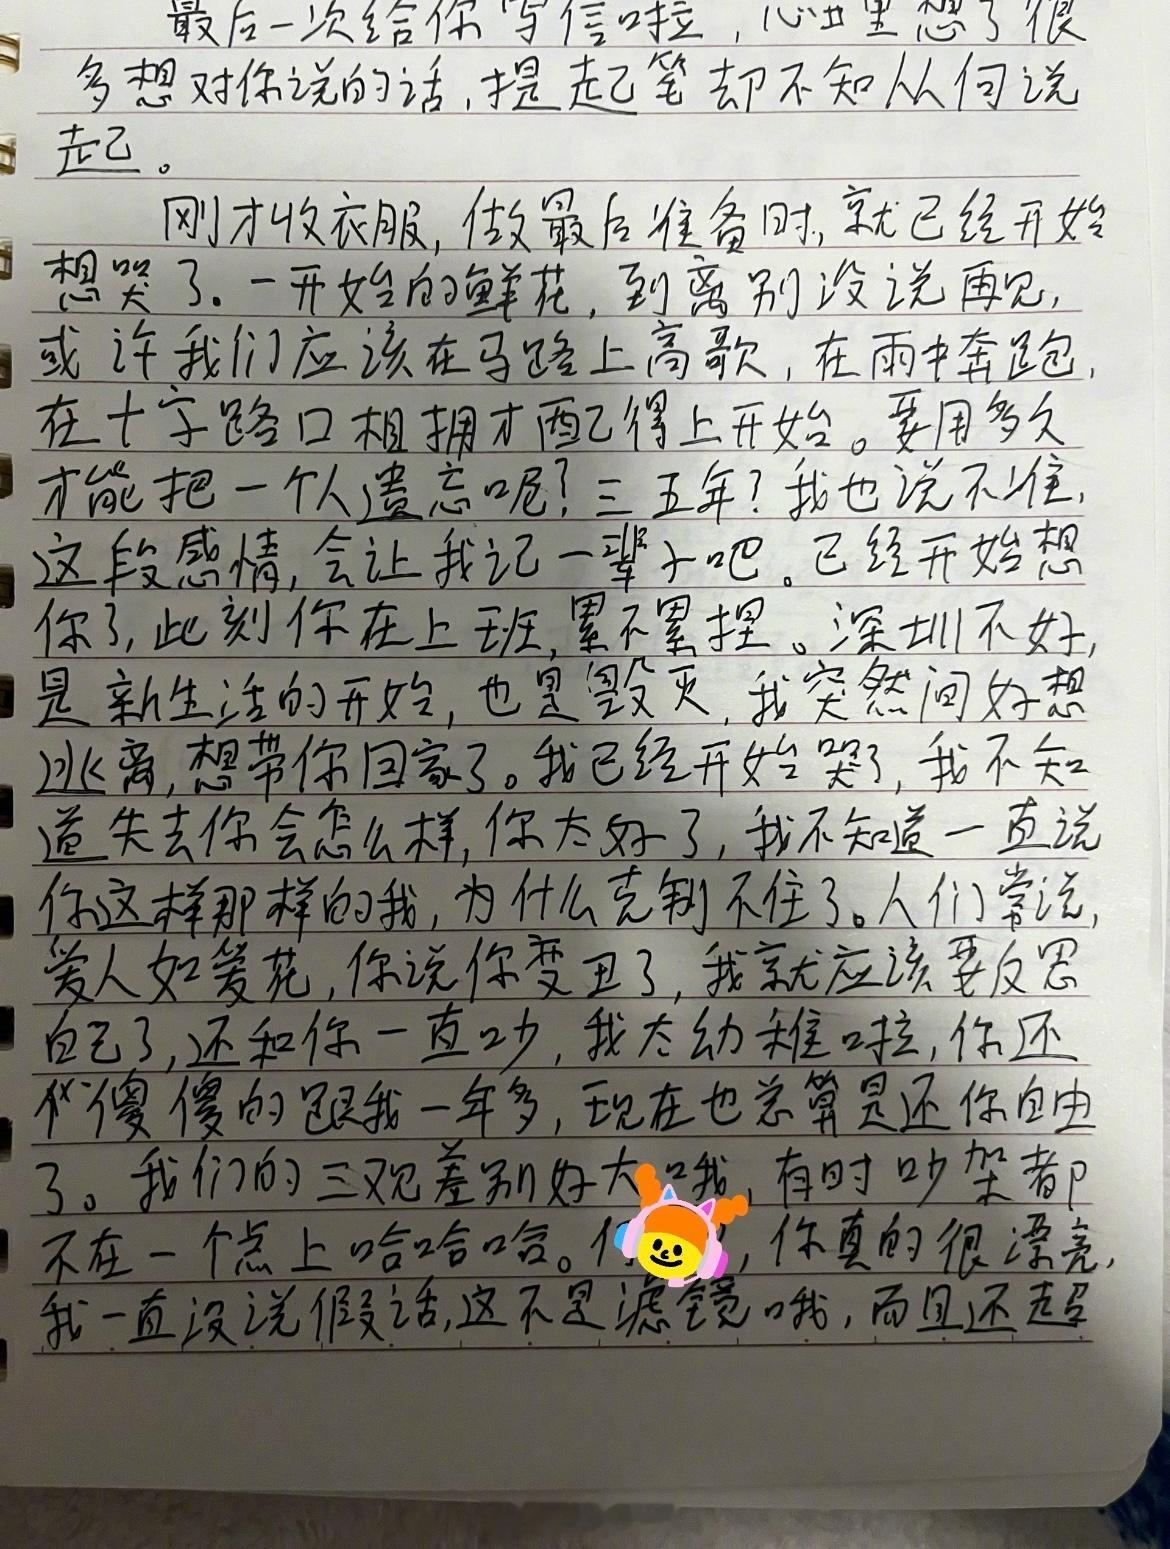 最后一次给你写信啦，心里想了很
多想对你说的话，提起笔却不知从何说
起。
刚才收衣服，做最后准备时，就已经开始
想哭了。一开始的鲜花，到离别没说再见，
或许我们应该在马路上高歌，在雨中奔跑，
在十字路口相拥才配得上开始。要用多久
才能把一个人遗忘呢？三五年？我也说不准，
这段感情，会让我记一辈子吧。已经开始想
你了，此刻你在上班，累不累捏。深圳不好，
是新生活的开始，也是毁灭，我突然间好想
逃离，想带你回家了。我已经开始哭了，我不知
道失去你会怎么样，你太好了，我不知道一直说
你这样那样的我，为什么克制不住了。人们常说，
爱人如爱花，你说你变丑了，我就应该要反思
自己了，还和你一直吵，我太幼稚啦，你还
傻傻的跟我一年多，现在也总算是还你自由
了。我们的三观差别好大哦，有时吵架都
不在一个点上哈哈哈。，你真的很漂亮，
我一直没说假话，这不是滤镜哦，而且还超